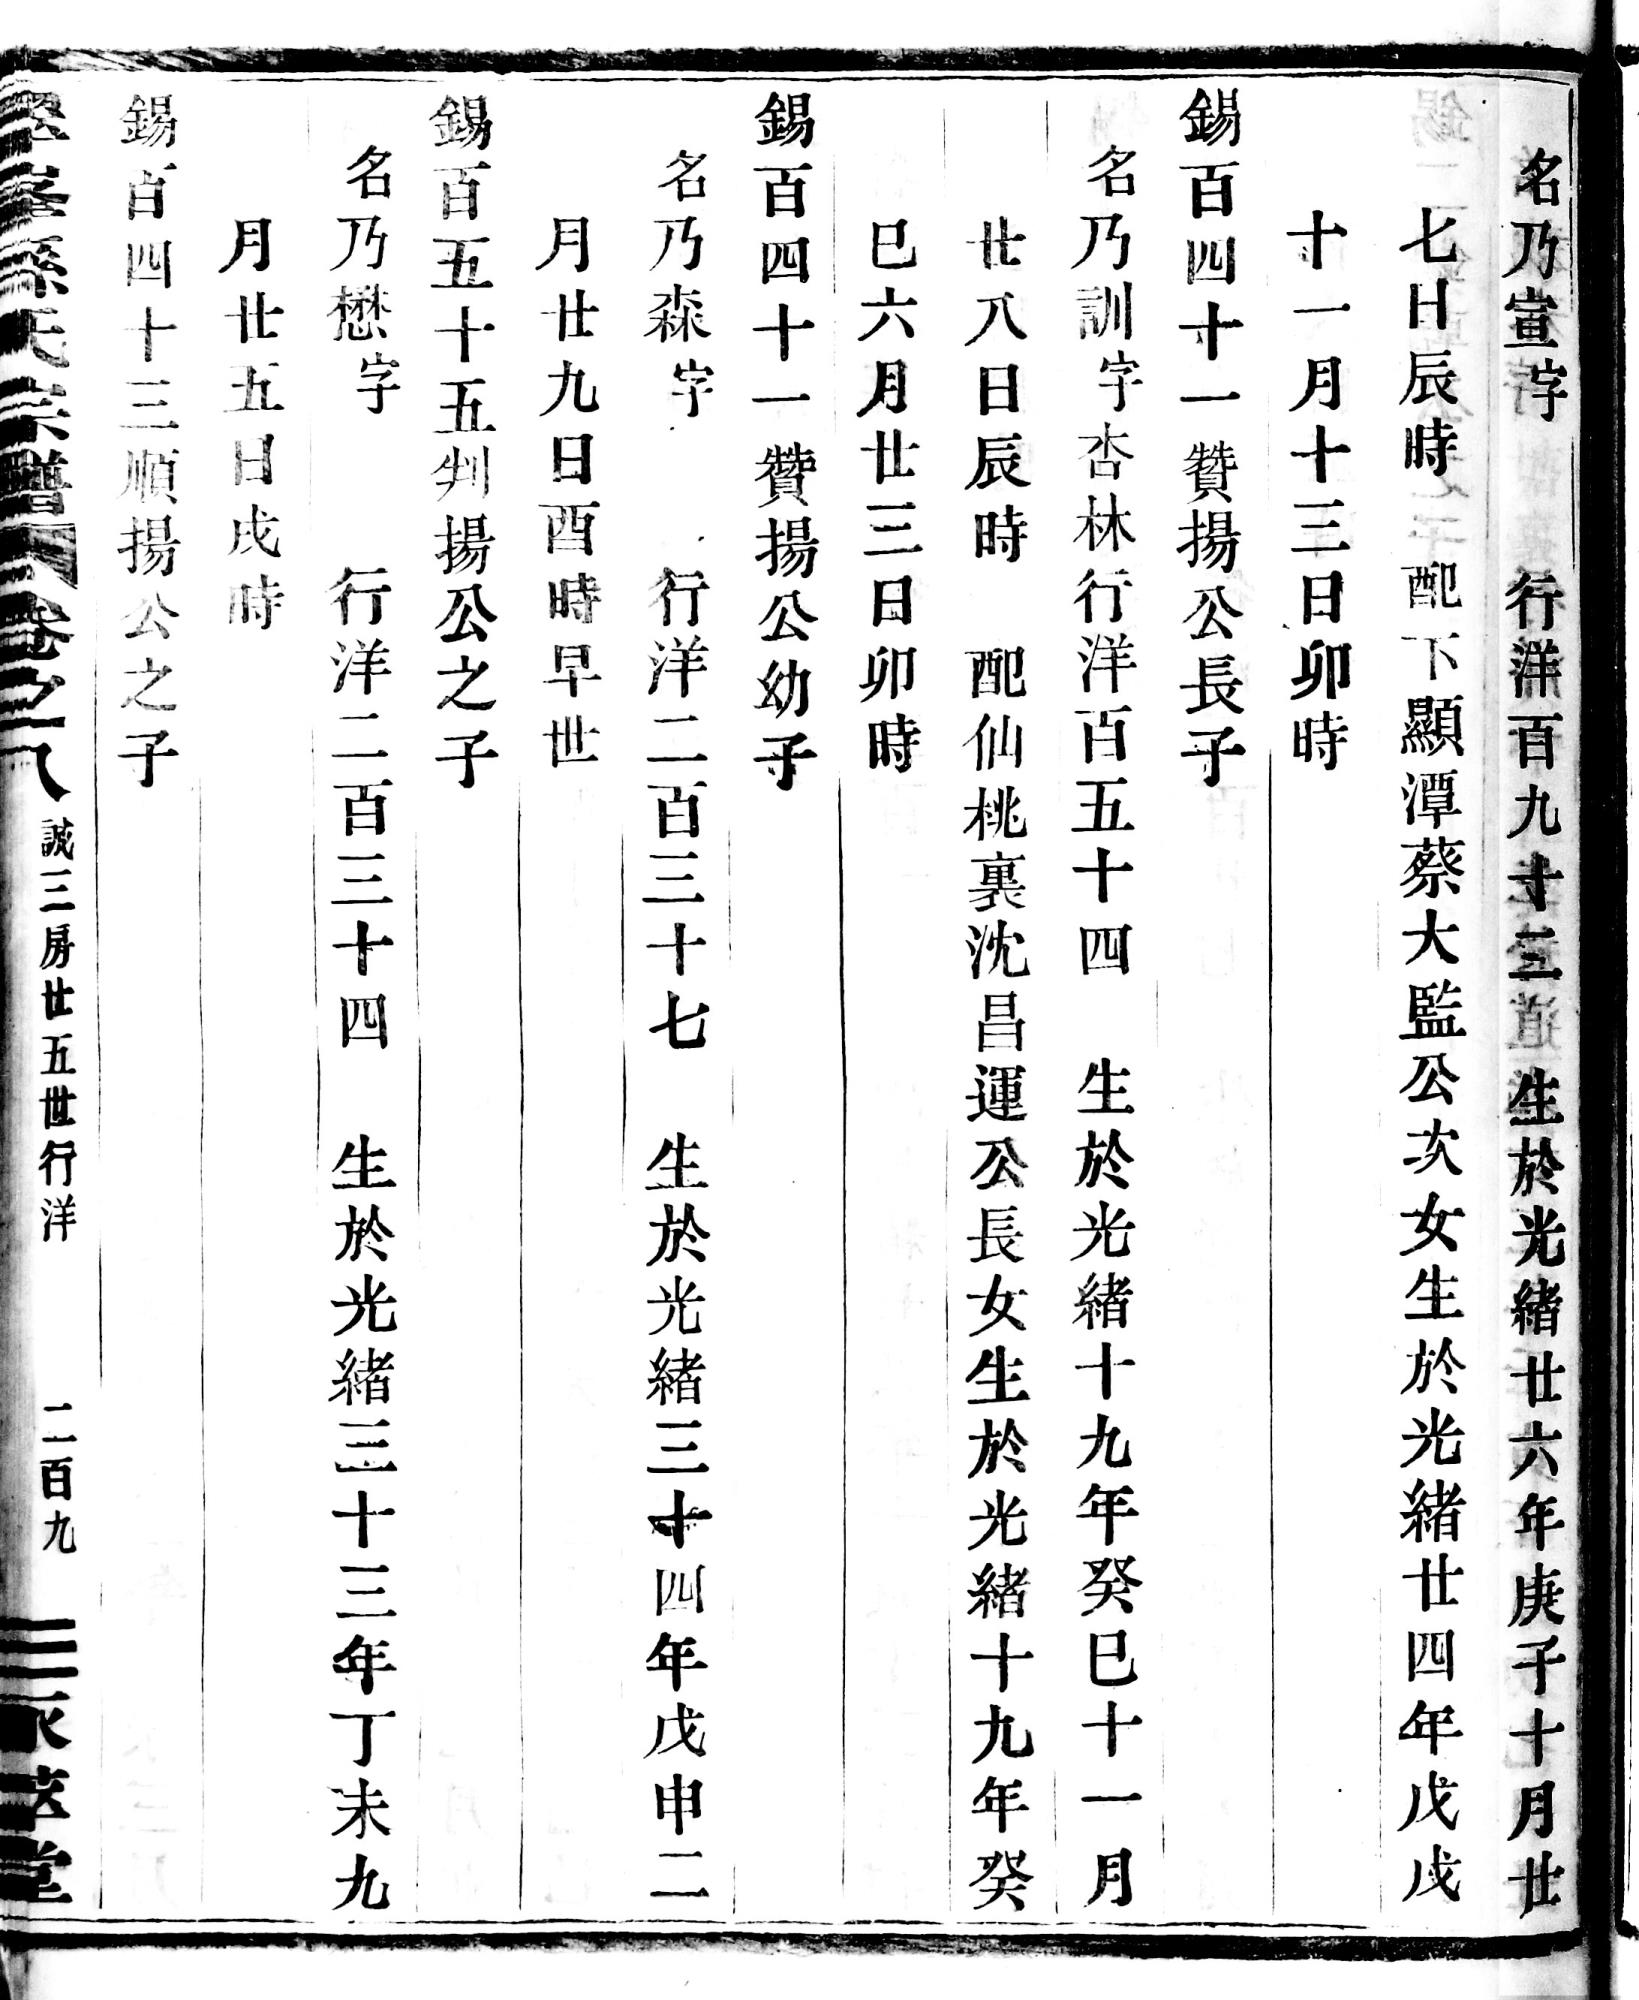 名乃宣字　行洋百九十三　生於光緒廿六年庚子十月廿
七日辰時　配下顯潭蔡大監公次女生於光緒廿四年戊戌
十一月十三日卯時
錫百四十一贊揚公長子
名乃訓字杏林行洋百五十四　生於光緒十九年癸巳十一月
廿八日辰時　配仙桃裏沈昌運公長女生於光緒十九年癸
巳六月廿三日卯時
錫百四十一贊揚公幼子
名乃森字　行洋二百三十七　生於光緒三十四年戊申二
月廿九日酉時早世
錫百五十五判揚公之子
名乃懋字　行洋二百三十四　生於光緒三十三年丁未九
月廿五日戌時
錫百四十三順揚公之子
孫氏宗譜　卷之八　誠三房廿五世行洋　二百九　堂